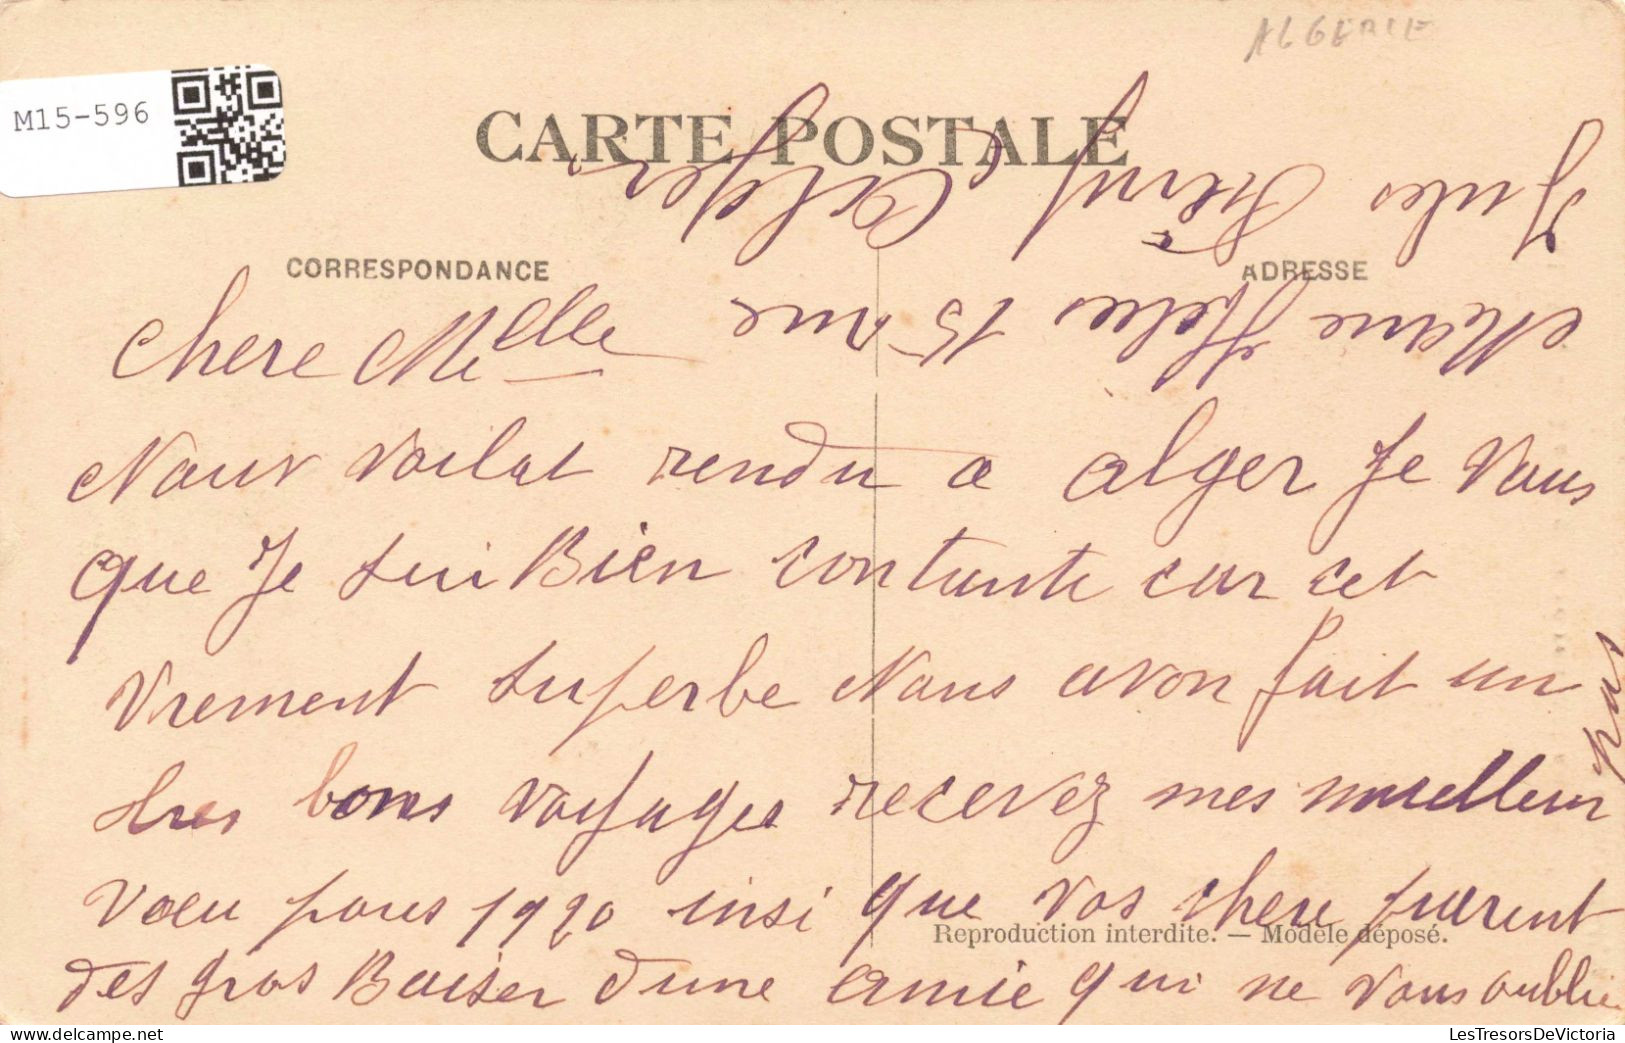 ALGERIE
M15-596
CARTE POSTALE
CORRESPONDANCE
ADRESSE
Chere Melle
Nour voilat rendu a alger Je vous
que Je sui Bien contante car cet
vrement superbe Nous avon fait un
tres bons voyages recevez mes meilleur
vœu pour 1920 insi que vos chere parent
des gros Baiser dune amie qui ne vous oublie
pas
15 rue
Jules Alger
Reproduction interdite. — Modèle déposé.
LesTresorsDeVictoria.com